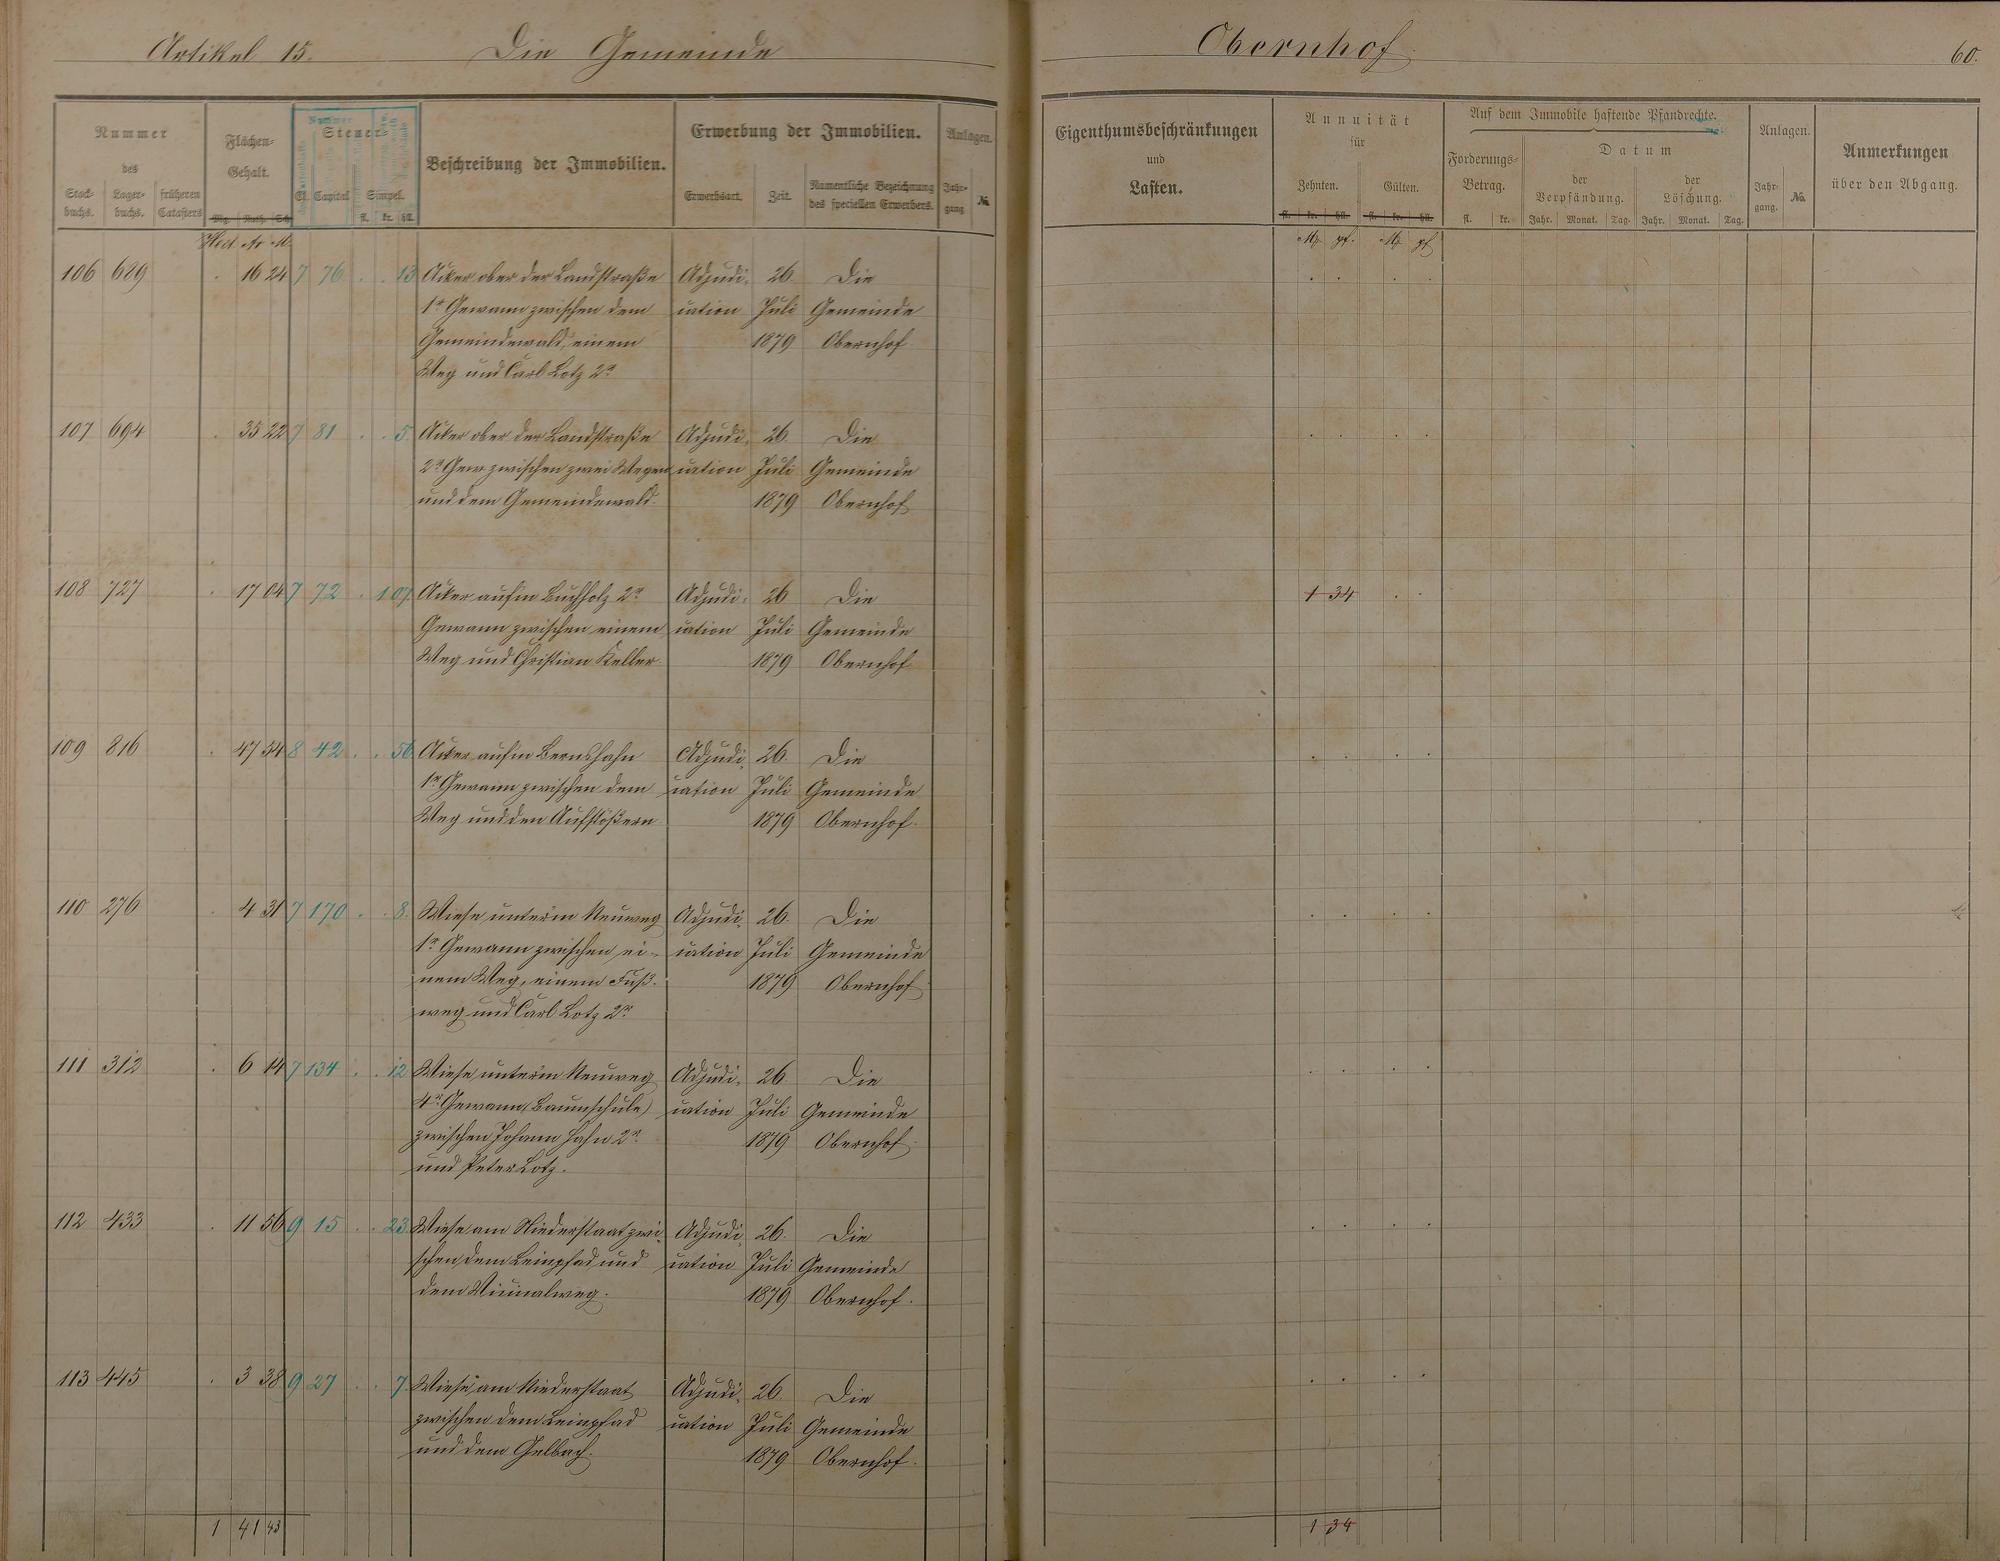 Artikel 15. Die Gemeinde
Obernhof. 60.
Nummer
des
Stock-buchs. Lager-buchs. früheren Catasters
Flächen-
Gehalt.
Mg. Rth. Sch.
Nummer
Steuer-
Cl. Capital Simpel.
fl. kr. hll.
Beschreibung der Immobilien.
Erwerbung der Immobilien.
Erwerbsart. Zeit. Namentliche Bezeichnung des speciellen Erwerbers.
Anlagen.
Jahr-gang №
Eigenthumsbeschränkungen
und
Lasten.
Annuität
für
Zehnten. Gülten.
fl. kr. hll. fl. kr. hll.
Auf dem Immobile haftende Pfandrechte.
Forderungs-
Betrag.
fl. kr.
Datum
der Verpfändung. der Löschung.
Jahr. Monat. Tag. Jahr. Monat. Tag.
Anlagen.
Jahr-gang. No.
Anmerkungen
über den Abgang.
Hect Ar M.
M pf. M pf
106 689 . 16 24 7 76 . . 13 Acker ober der Landstraße Adjudi- 26. Die
1r Gewann zwischen dem cation Juli Gemeinde
Gemeindewald, einem 1879 Obernhof.
Weg und Carl Lotz 2r
107 694 . 35 22 7 81 . . 5. Acker ober der Landstraße Adjudi- 26. Die
2r Gew zwischen zwei Wegen cation Juli Gemeinde
und dem Gemeindewald. 1879 Obernhof
108 727 . 17 04 7 72 . 1 07. Acker aufm Buchholz 2r Adjudi- 26 Die 1 34
Gewann zwischen einem cation Juli Gemeinde
Weg und Christian Keller. 1879 Obernhof
109 816 . 47 54 8 42 . . 56 Acker aufm Bernshahn Adjudi- 26. Die
1r Gewann zwischen dem cation Juli Gemeinde
Weg und den Aufstößern. 1879 Obernhof.
110 276 . 4 31 7 170 . . 8. Wiese unterm Neuweg Adjudi- 26. Die
1r Gewann zwischen ei- cation Juli Gemeinde
nem Weg, einem Fuß- 1879 Obernhof
weg und Carl Lotz 2r
111 312 . 6 14 7 134 . . 12 Wiese unterm Neuweg Adjudi- 26. Die
4r Gewann (Baumschule) cation Juli Gemeinde
zwischen Johann Hahn 2r 1879 Obernhof.
und Peter Lotz.
112 433 . 11 56 9 15 . . 23. Wiese am Niederstaat zwi- Adjudi- 26. Die
schen dem Leinpfad und cation Juli Gemeinde
dem Vicinalweg. 1879 Obernhof.
113 445 . 3 38 9 27 . . 7. Wiese am Niederstaat Adjudi- 26. Die
zwischen dem Leinpfad cation Juli Gemeinde
und dem Gelbach. 1879 Obernhof.
1 41 43 1 34